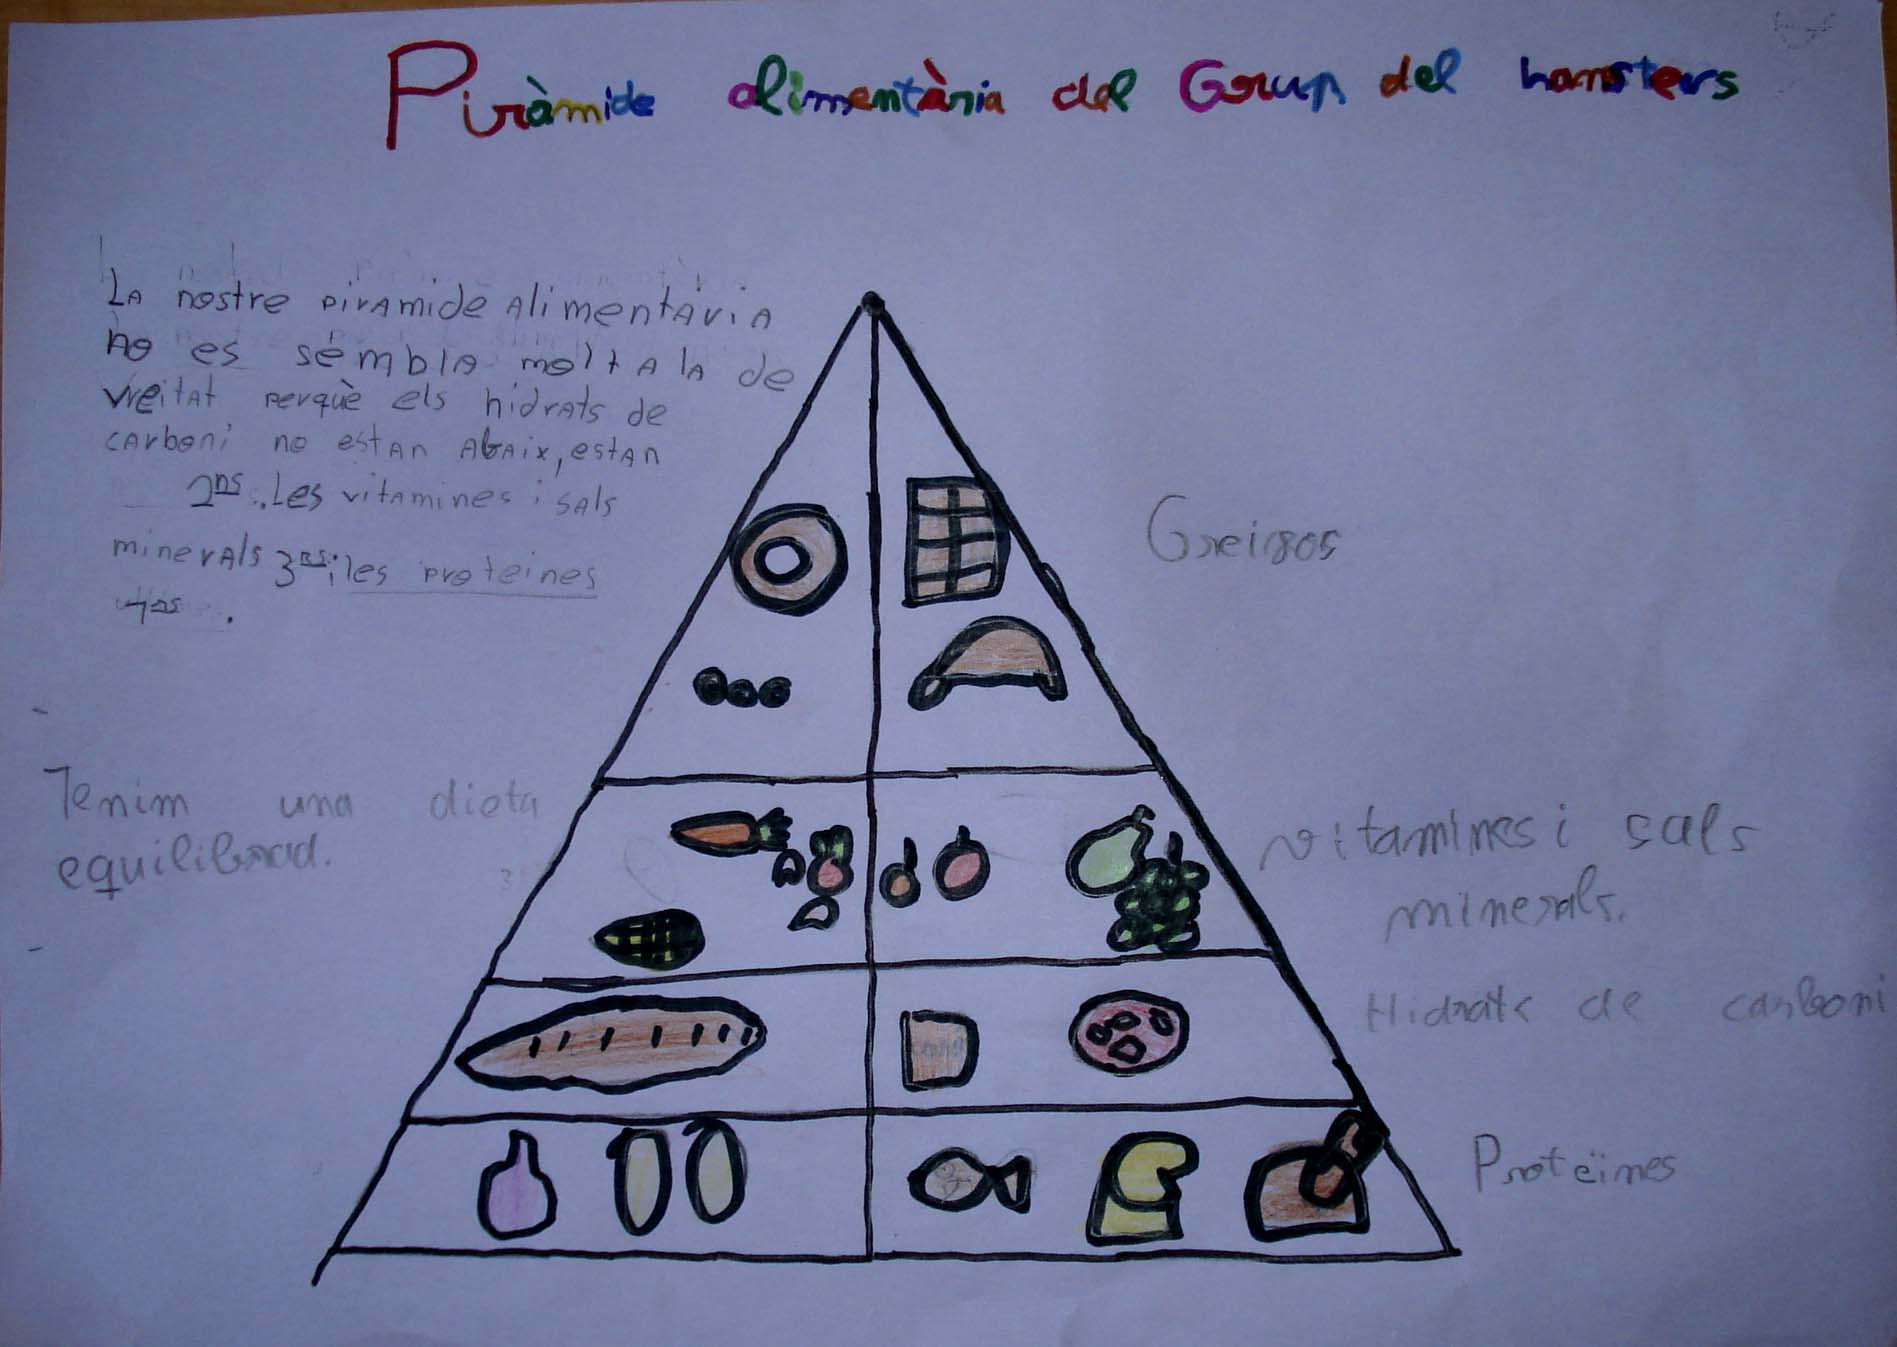 Piràmide alimentària del Grup del hamsters
La nostre piramide alimentària
no es sembla molt a la de
vreitat perquè els hidrats de
carboni no estan abaix, estan
2ns. Les vitamines i sals
minerals 3rs i les proteines
4ts.
Greixos
Tenim una dieta
equilibrad.
vitamines i sals
minerals.
Hidrats de carboni
Proteïnes